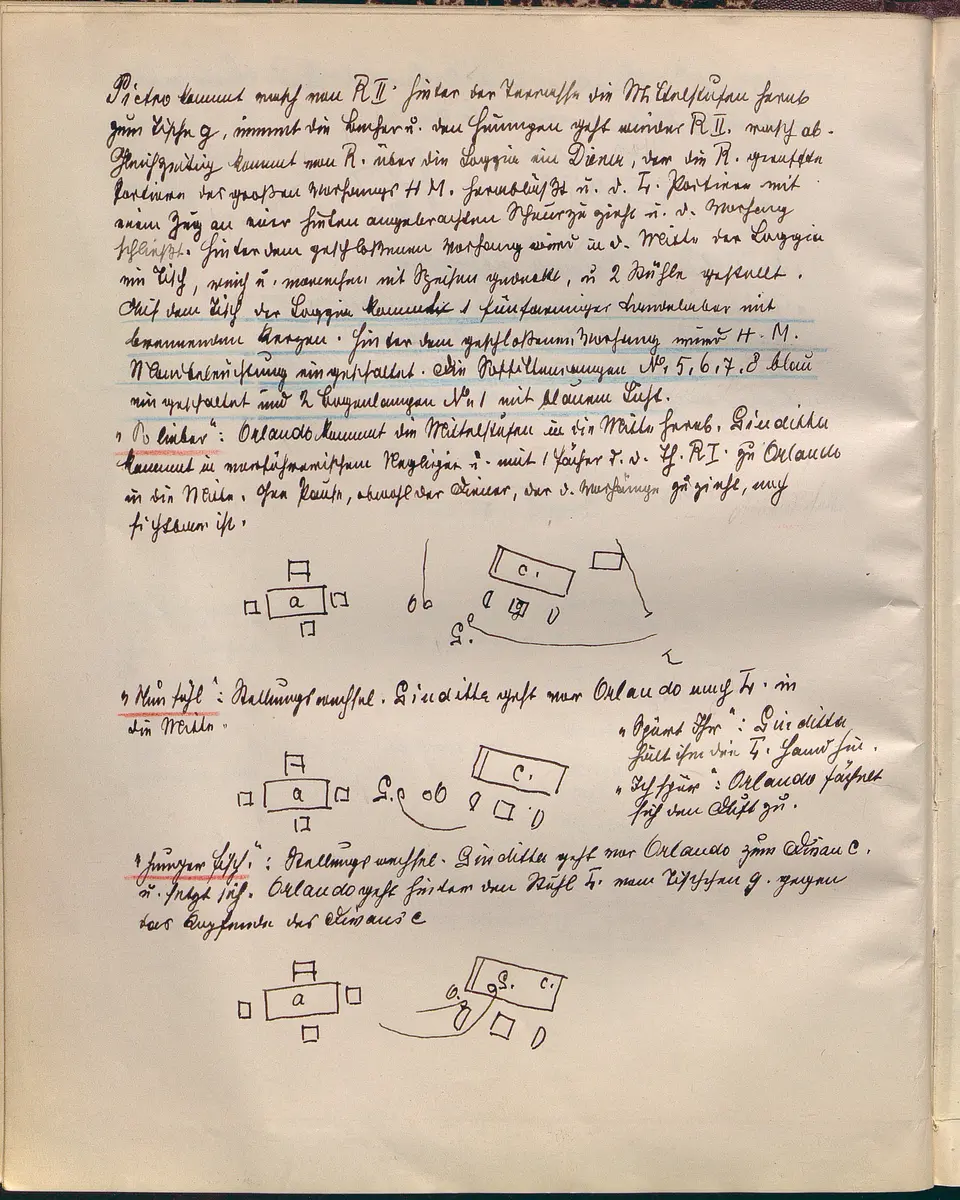 Pietro kommt rasch von R II. hinter der Terrasse die Mittelstufen herab
zum Tische g, nimmt die Becher u. den Humpen geht wieder R II. rasch ab.
Gleichzeitig kommt von R. über die Loggia ein Diener, der die R. geraffte
Portiere des großen Vorhangs H M. herabläßt u. d. L. Portiere mit
einem Zug an einer hinten angebrachten Schnur zu zieht u. d. Vorhang
schließt. Hinter dem geschloßenen Vorhang wird in d. Mitte der Loggia
ein Tisch, reich u. mit Speisen gedeckt, u 2 Stühle gestellt.
Auf dem Tisch der Loggia kommt 1 fünfarmiger Kandelaber mit
brennenden Kerzen. Hinter dem geschloßenen Vorhang wird H. M.
Mondbeleuchtung eingeschaltet. Die Soffittenrampen No. 5, 6, 7, 8 blau
eingeschaltet und 2 Bogenlampen No. 1 mit blauem Licht.
"So lieber": Orlando kommt die Mittelstufen in die Mitte herab. Giuditta
kommt in verführerischem Negligée u. mit 1 Fächer d. d. Th. R I. zu Orlando
in die Mitte. Ohne Pause, obwohl der Diener, der d. Vorhänge zu zieht, noch
sichtbar ist.
a
O
c.
g
G.
L
"Nun fühl": Stellungswechsel. Giuditta geht vor Orlando nach L. in
die Mitte.
"Spürt Ihr": Giuditta
hält ihm die L. Hand hin.
"Ich spür": Orlando fächelt
sich den Duft zu.
a
G.
O
c.
"Hunger Tisch": Stellungswechsel. Giuditta geht vor Orlando zum Divan c.
u. setzt sich. Orlando geht hinter den Stuhl L. vom Tischchen g. gegen
das Kopfende des Divans c
a
O.
G.
c.